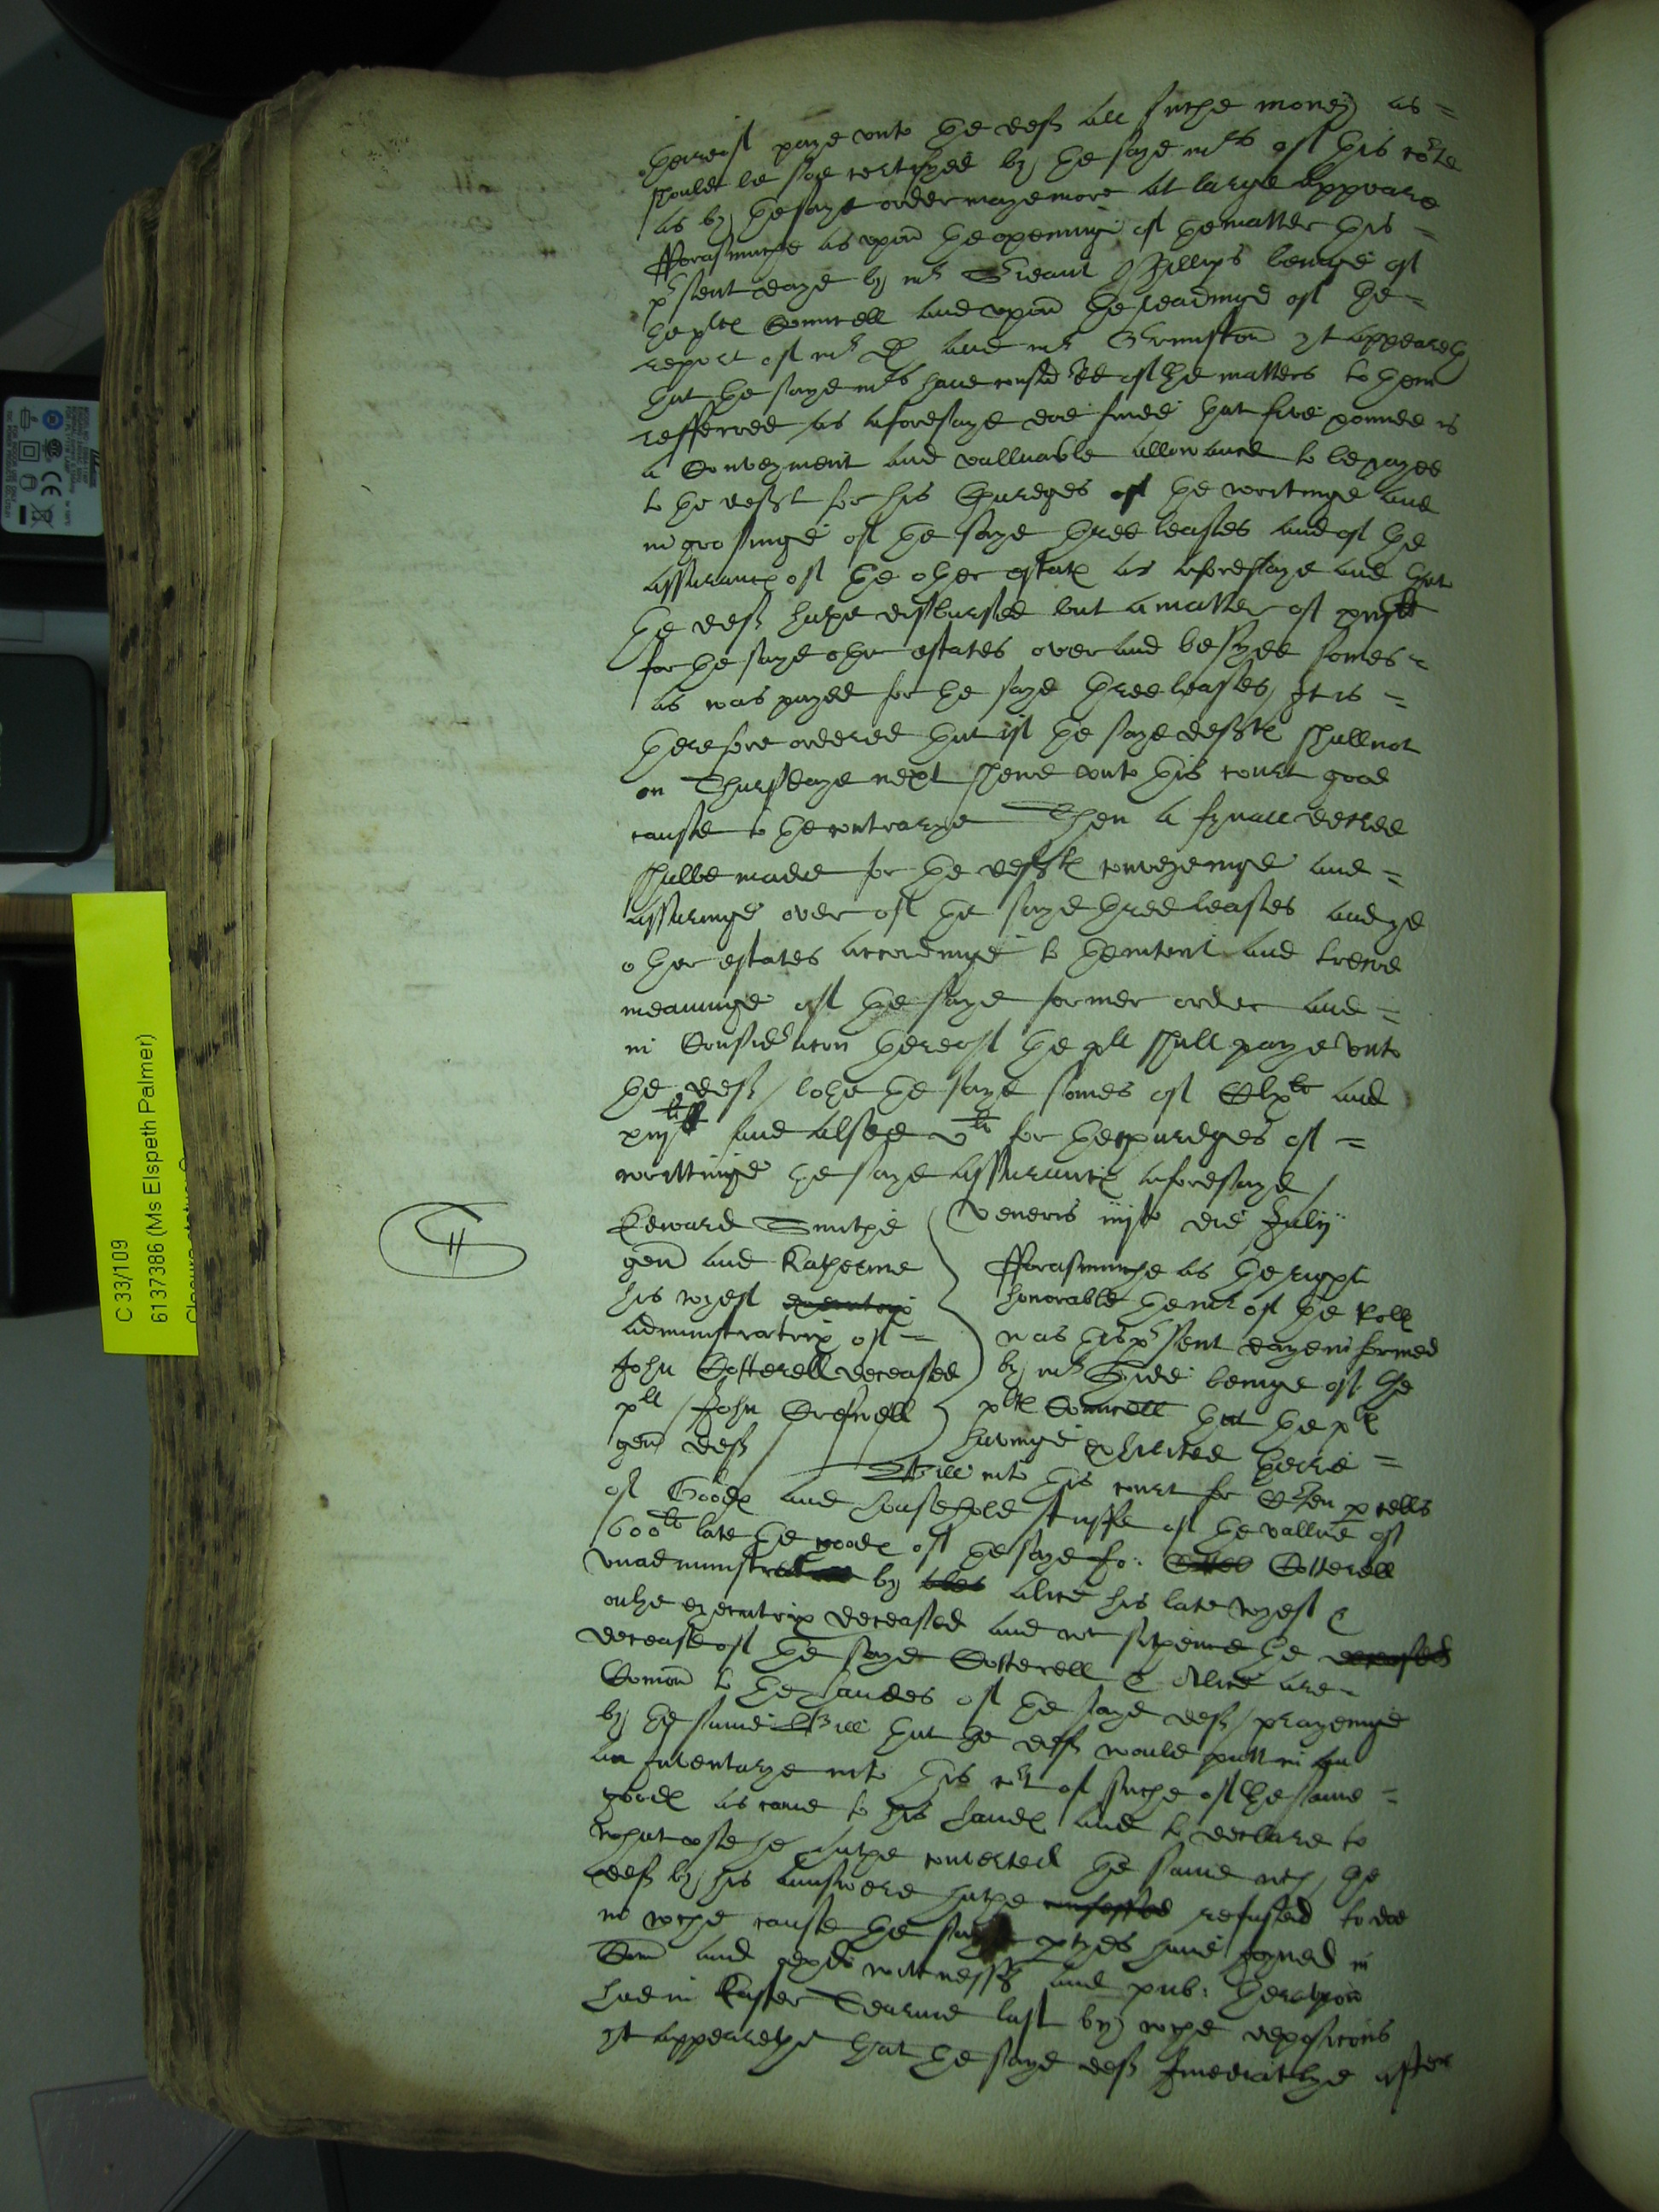 thereof paye unto the deft all suche money as =
should be soe certifyed by the saye mrs of this corte
as by the saye order maye more at large appeare
fforasmuche as upon the openinge of the matter this =
psent daye by mr Srieant Phillips beinge of
the pltes Councell and upon the readinge of the =
report of mr and mr Grimston yt appeareth
that the saye mrs have considred of the matters to them
refferred as aforesaye doe finde that five pounde is
a Convenyent and valluable allowance to be payed
to the deft for his Chardges of the writinge and
ingrosinge of the saye three leases and of the
assurance of the other estate as aforesaye and that
the deft hathe disbursed but a matter of
for the saye other estates over and besyde somes =
as was payed for the saye three leases, It is =
therefore ordered that if the saye deft shall not
on Thursdaye next shewe unto this court good
cause to the contrarye Then a fynall decree
shalbe made for the deft conveyeinge and =
assuringe over of the saye three leases and ye
other estates accordinge to the intent and trewe
meaninge of the saye former order and =
in Consideracon thereof the pll shall paye unto
the deft bothe the saye somes of and
and alsoe vli for the chardges of =
writtinge the saye assurance aforesaye /
Edward Smithe
gen and Katherine
his wyef executrix
administratrix of =
John Cotterell deceased
pll / John Creswell
gen deft
Veneris iiijto die Julij
fforasmuche as the right
honorable the mr of the Rolls
was this psent daye informed
by mr Hide beinge of the
plts Councell that the plts
havinge exhibited there =
Bill into this court for Cten pcells
of Goods and household stuffe of the vallue of
600li late the goods of the saye Jo: Cotterell
unadministred by Alice his late wyef &
onlye executrix deceased and wch sythence the deceased
decease of the saye Cotterell & Alice are =
Comon to the handes of the saye deft / prayeinge
by the same Bill that the deft would putt in an
an Inventarye into this cort of suche of the same =
goods as came to his hands and to declare to
what use he hathe converted the same wch the
deft by his aunswere hathe confessed refused to doe
in wche cause the saye ptyes have joyned in
Com and exd wittnesses and pub: thereupon
had in Easter Tearme last by wche deposicons
yt appearethe that the saye deft Imediatlye after
C 33/109
6137386 (Ms Elspeth Palmer)